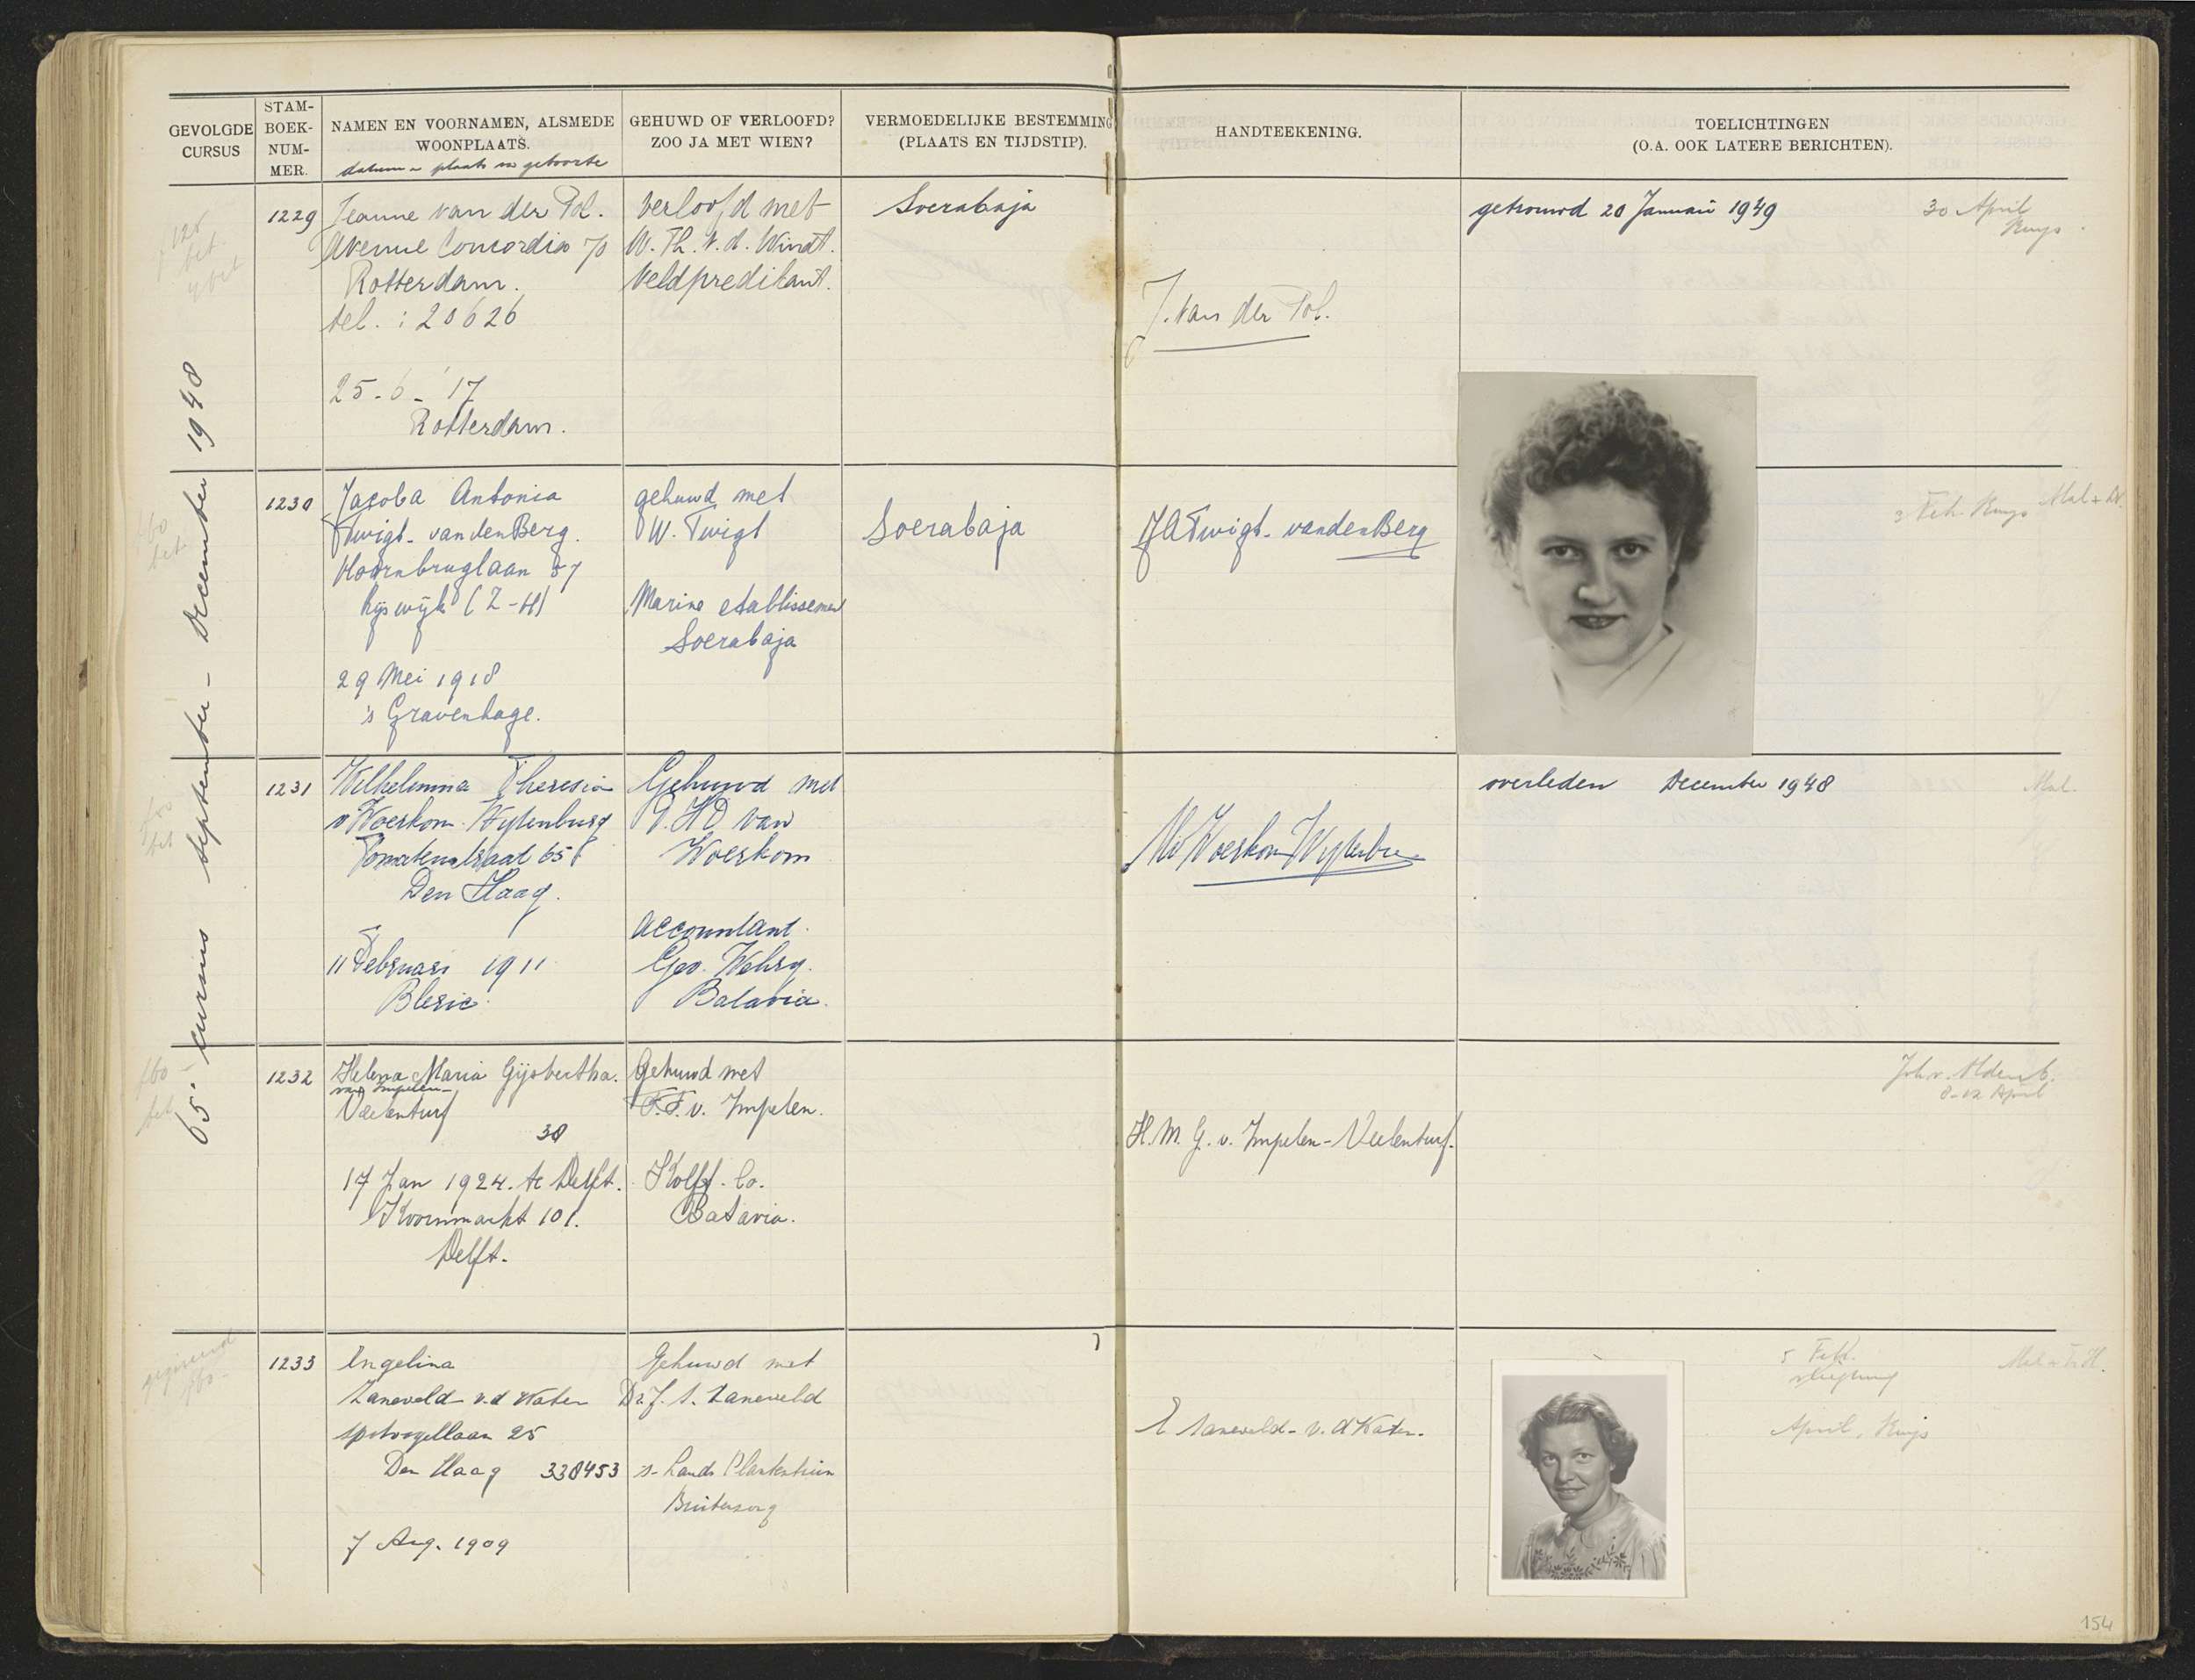 GEVOLGDE
CURSUS
STAM-
BOEK-
NUM-
MER.
NAMEN EN VOORNAMEN, ALSMEDE
WOONPLAATS.
datum en plaats van geboorte
GEHUWD OF VERLOOFD?
ZOO JA MET WIEN?
VERMOEDELIJKE BESTEMMING
(PLAATS EN TIJDSTIP).
HANDTEEKENING.
TOELICHTINGEN
(O.A. OOK LATERE BERICHTEN).
65e cursus september - december 1948
1229
Jeanne van der Pol.
Avenue Concordia 70
Rotterdam.
tel. : 20626
25-6-'17
Rotterdam.
Verloofd met
W. Th. v. d. Windt.
Veldpredikant.
Soerabaja
J. van der Pol.
getrouwd 20 Januari 1949
30 April
1230
Jacoba Antonia
Twigt- van den Berg.
Hoornbruglaan 37
Rijswijk (Z-H)
29 Mei 1918
's Gravenhage.
gehuwd met
W. Twigt
Marine etablissement
Soerabaja
Soerabaja
JATwigt- vandenBerg
3 Feb.
1231
Wilhelmina Theresia
v Woerkom-Wytenburg
Tomatenstraat 65
Den Haag.
11 Februari 1911
Bleric
Gehuwd met
P. H.D van
Woerkom
accountant.
Geo. Wehry.
Batavia.
overleden December 1948
Mal.
1232
Helena Maria Gijsbertha.
van Impelen-
Veelenturf
30
17 Jan 1924. te Delft.
Koornmarkt 101.
Delft.
Gehuwd met
F.F. v. Impelen.
Kolff. Co.
Batavia.
H. M. G. v. Impelen-Veelenturf.
Joh. v. Oldenb.
8-12 April
1233
Engelina
Zaneveld- v.d Water
Spotvogellaan 25
Den Haag 330453
7 Aug. 1909
Gehuwd met
Dr. J. S. Zaneveld
s- Lands Plantentuin
Buitenzorg
E Zaneveld- v. d Water.
5 Feb.
April,
154